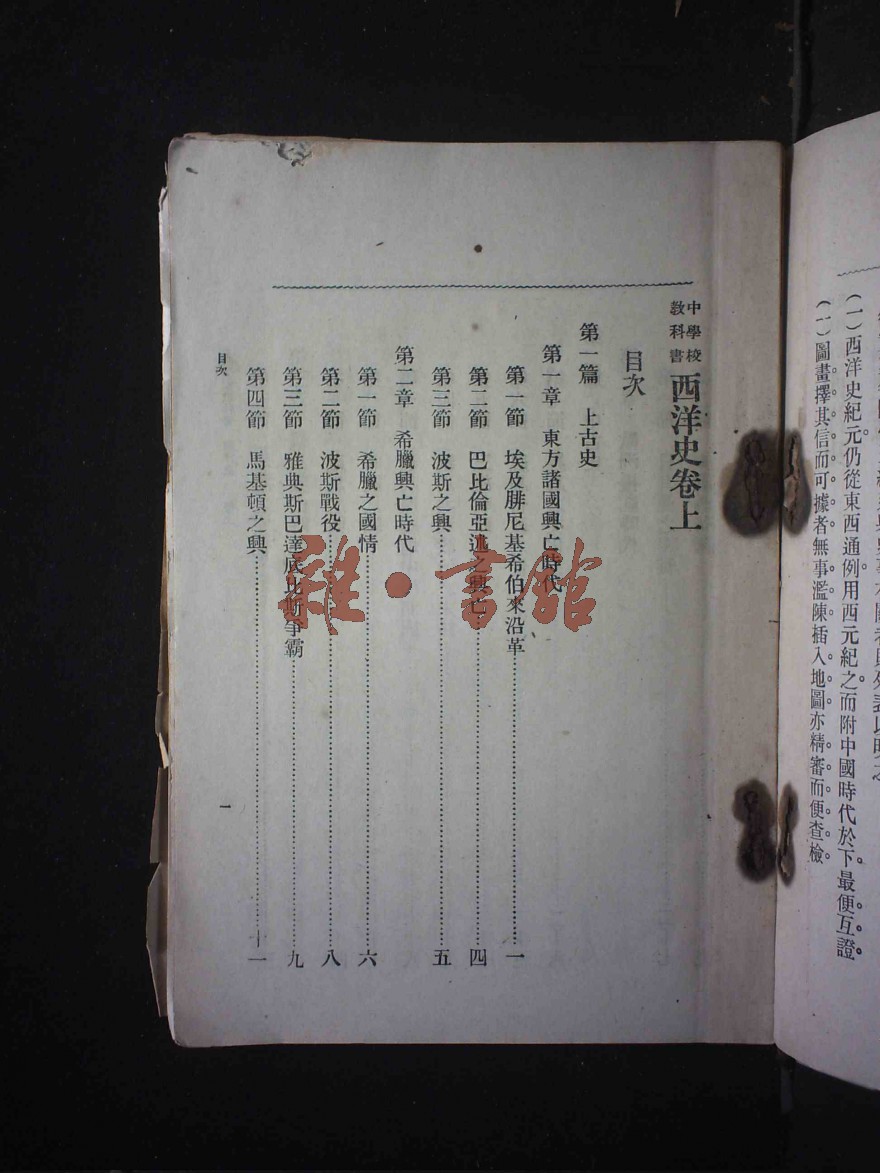 (一)西洋史紀元仍從東西通例用西元紀之而附中國時代於下最便互證
(一)圖畫擇其信而可據者無事濫陳插入地圖亦精審而便查檢
中學校
教科書
西洋史卷上
目次
第一篇 上古史
第一章 東方諸國興亡時代
第一節 埃及腓尼基希伯來沿革……一
第二節 巴比倫亞述之興亡……四
第三節 波斯之興……五
第二章 希臘興亡時代
第一節 希臘之國情……六
第二節 波斯戰役……八
第三節 雅典斯巴達底比斯爭霸……九
第四節 馬基頓之興……十一
目次
一
雜·書館